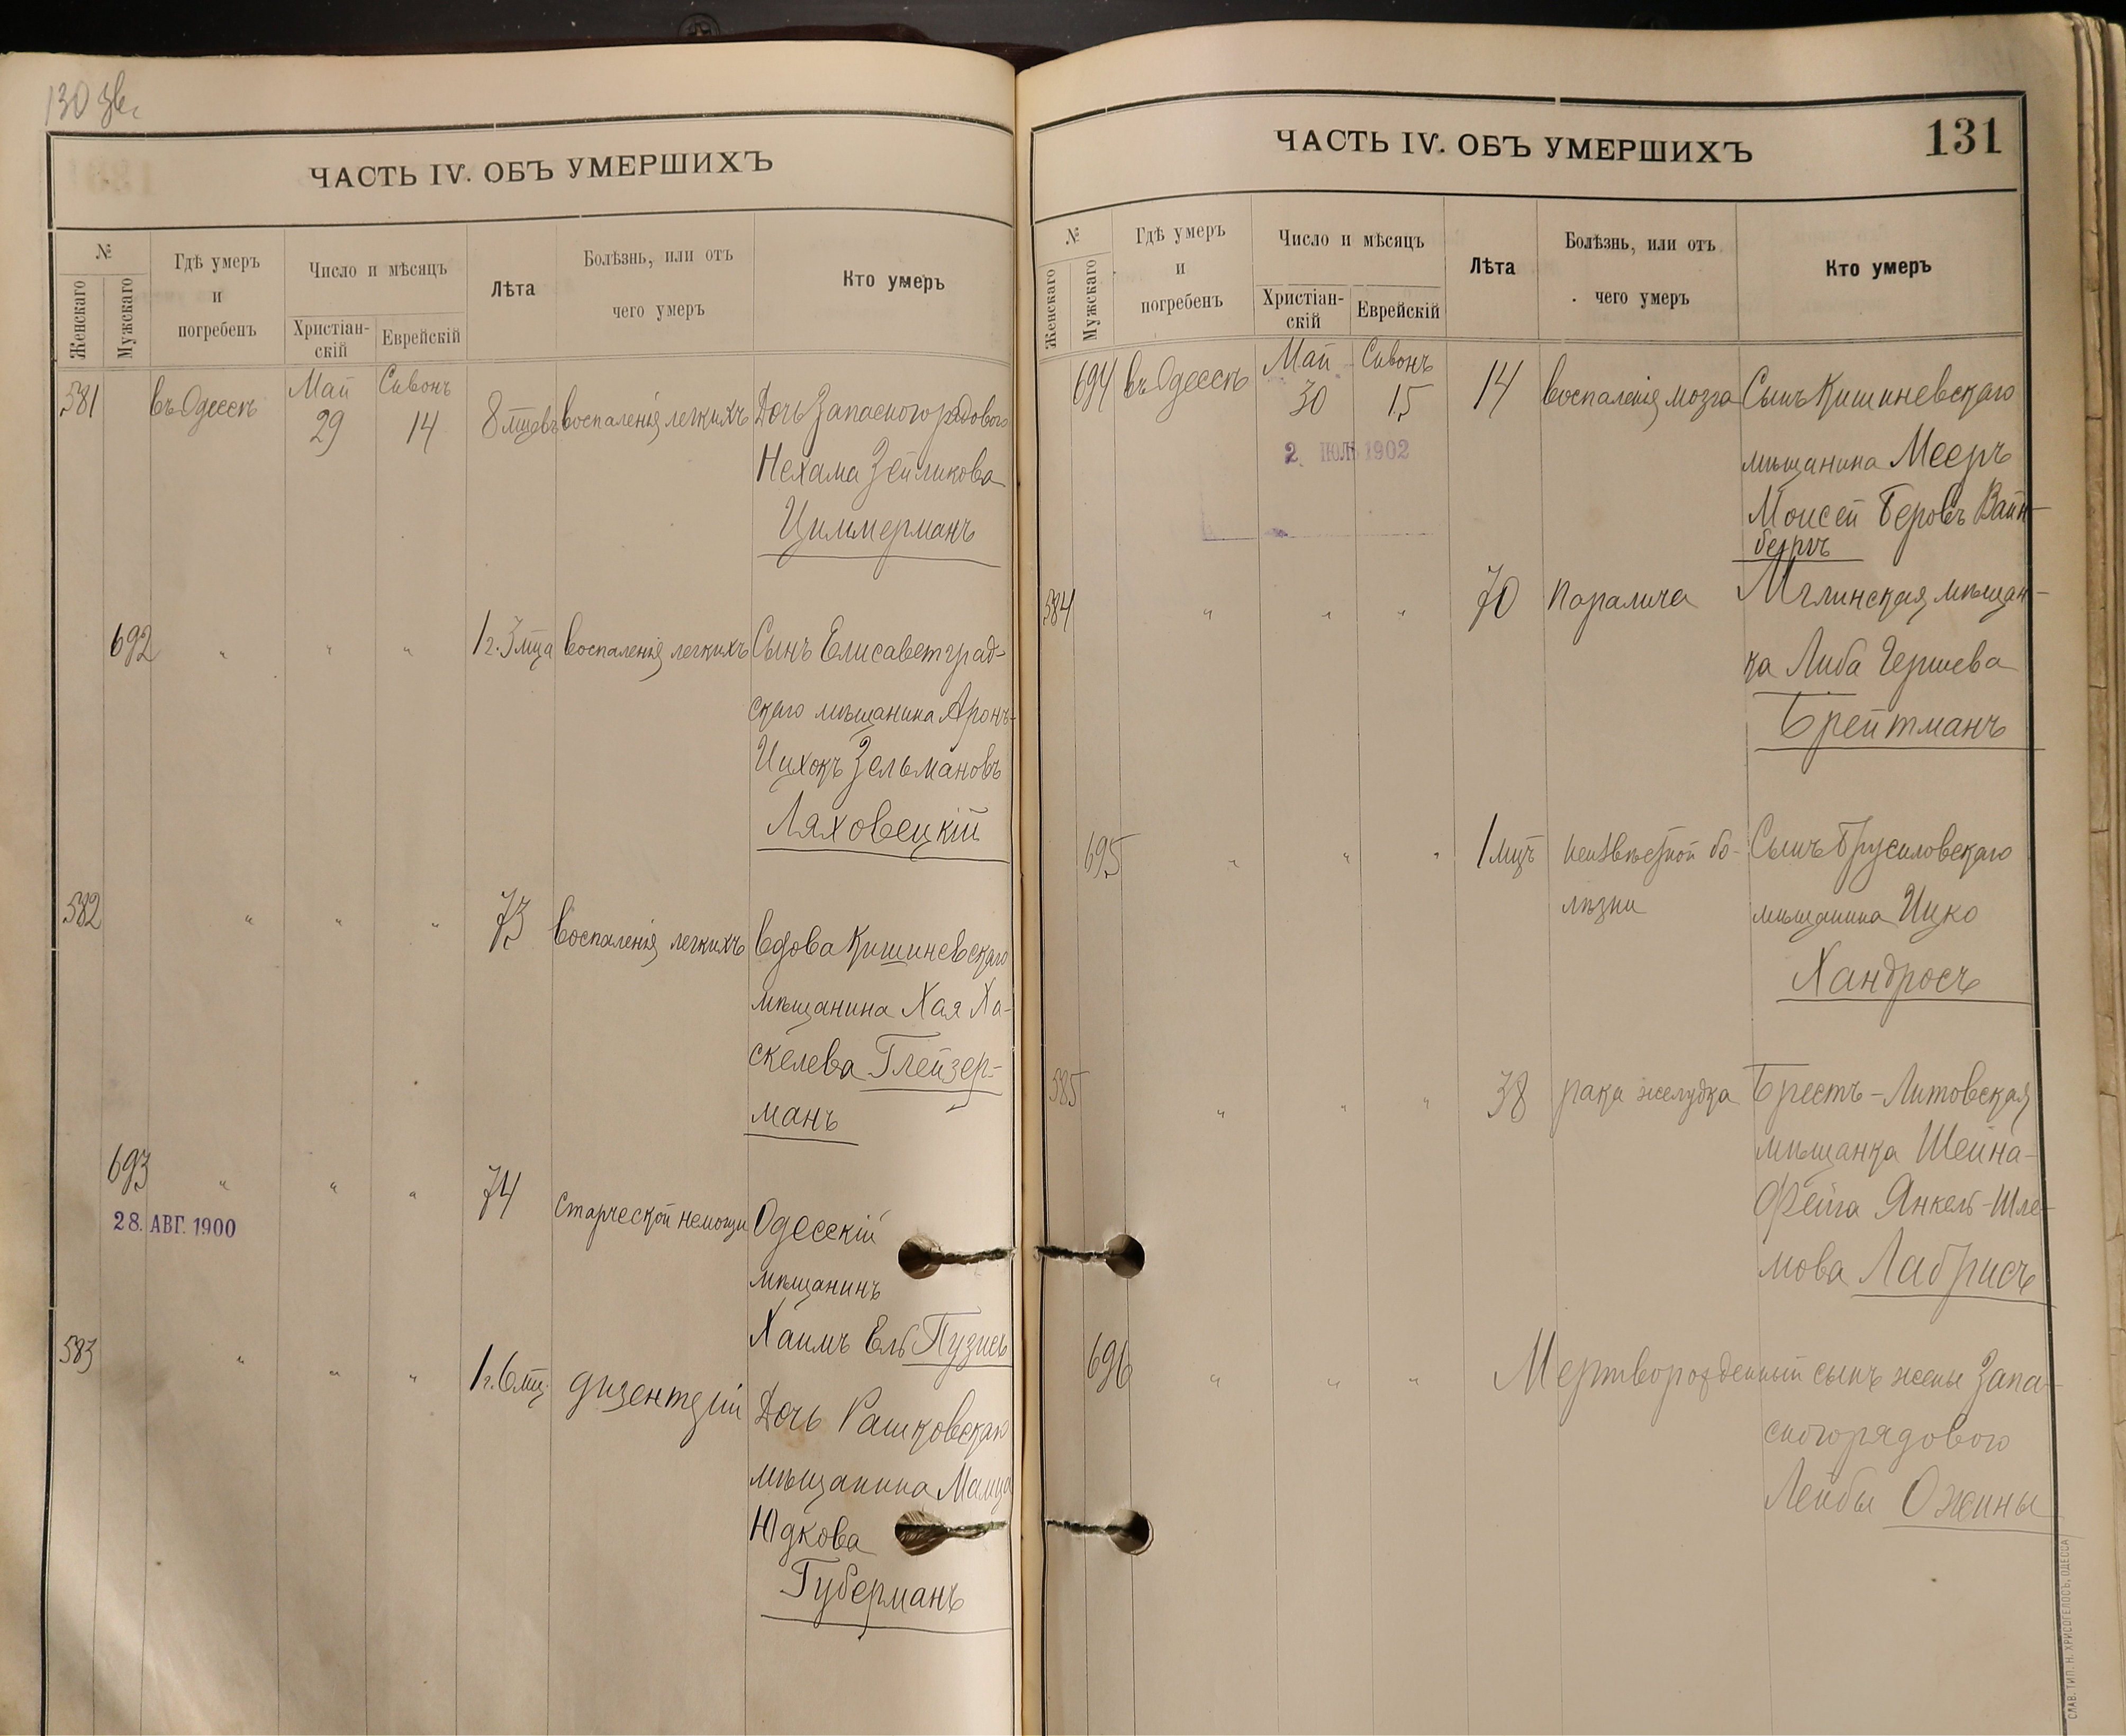 130 зв.
ЧАСТЬ IV. ОБЪ УМЕРШИХЪ
№
Женскаго
Мужскаго
Гдѣ умеръ
и
погребенъ
Число и мѣсяцъ
Христіан-
скій
Еврейскій
Лѣта
Болѣзнь, или отъ
чего умеръ
Кто умеръ
Май Сивонъ
581 въ Одессѣ 29 14 8 мцевъ воспаленія легкихъ Дочь Запасного рядового
Нехама Зейликова
Циммерманъ
692 " " " 1 г. 3 мца воспаленія легкихъ Сынъ Елисаветград-
скаго мѣщанина Аронъ-
Ицхокъ Зельмановъ
Ляховецкій
582 " " " 73 воспаленія легкихъ вдова Кишиневскаго
мѣщанина Хая Ха-
скелева Глейзер-
манъ
693 " " " 74 Старческой немощи Одесскій
28. АВГ. 1900
мѣщанинъ
Хаимъ Ель Пузисъ
583 " " " 1 г. 6 мц. дизентеріи Дочь Рашковскаго
мѣщанина
Юдкова
Губерманъ
ЧАСТЬ IV. ОБЪ УМЕРШИХЪ
131
№
Женскаго
Мужскаго
Гдѣ умеръ
и
погребенъ
Число и мѣсяцъ
Христіан-
скій
Еврейскій
Лѣта
Болѣзнь, или отъ
чего умеръ
Кто умеръ
Май Сивонъ
694 въ Одессѣ 30 15 14 воспаленія мозга Сынъ Кишиневскаго
2 1902
мѣщанина Мееръ
Моисей Беровъ Вайн-
бергъ
584 " " " 70 Паралича Мглинская мѣщан-
ка Либа Гершева
Брейтманъ
695 " " " 1 мцъ неизвѣстной бо- Сынъ Брусиловскаго
лѣзни мѣщанина Ицко
Хандросъ
585 " " " 38 рака желудка Брестъ-Литовская
мѣщанка Шейна-
Фейга Янкель-Шле-
мова Лабрисъ
696 " " " Мертворожденный сынъ жены Запа-
сного рядового
Лейбы Ожины
СЛАВ. ТИП. Н. ХРИСОГЕЛОСЪ, ОДЕССА